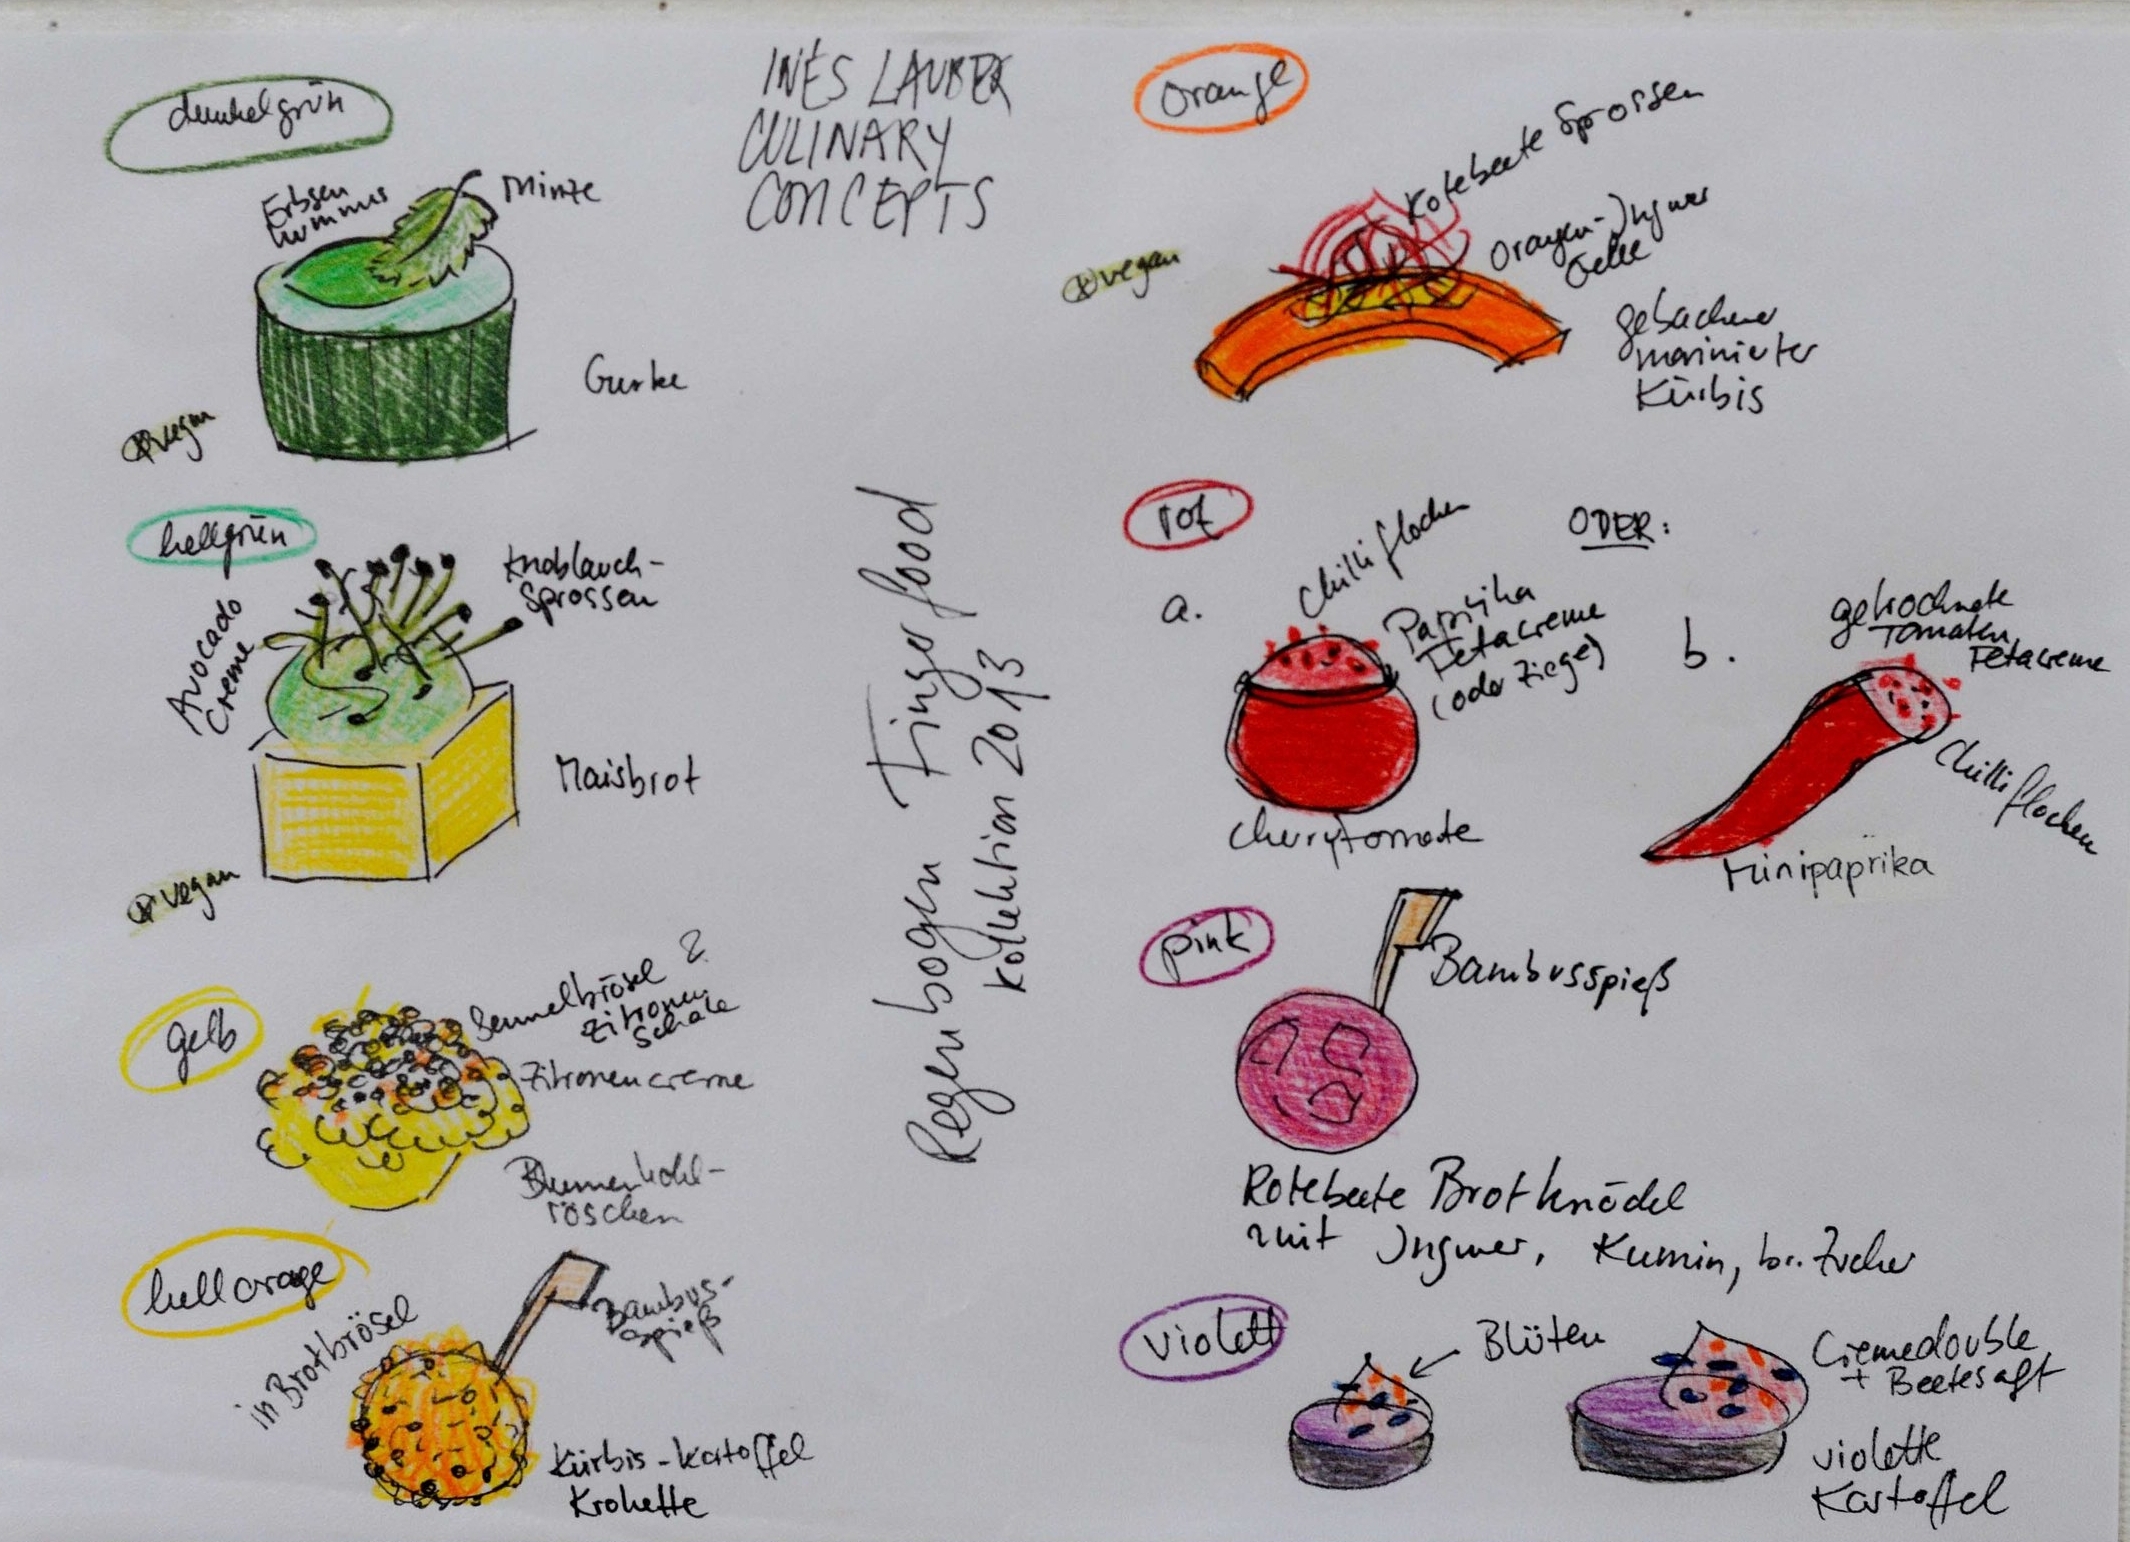 INÉS LAUBER
CULINARY
CONCEPTS
Regenbogen Fingerfood
Kollektion 2013
dunkelgrün
Erbsen
hummus
Minze
Gurke
vegan
hellgrün
Knoblauch-
Sprossen
Avocado
Creme
Maisbrot
vegan
gelb
Semmelbrösel &
Zitronen
Schale
Zitronencreme
Blumenkohl-
röschen
hellorage
in Brotbrösel
Bambus-
spieß
Kürbis-Kartoffel
Krokette
orange
Rotebeete Sprossen
vegan
Orangen-Ingwer
Gelee
gebackener
marinierter
Kürbis
rot
ODER:
a.
Chilliflocken
Paprika
Fetacreme
(oder Ziege)
Cherrytomate
b.
getrocknete
Tomaten
Fetacreme
Chilliflocken
Minipaprika
pink
Bambusspieß
Rotebeete Brotknödel
mit Ingwer, Kumin, br. Zucker
violett
Blüten
Cremedouble
+ Beetesaft
violette
Kartoffel